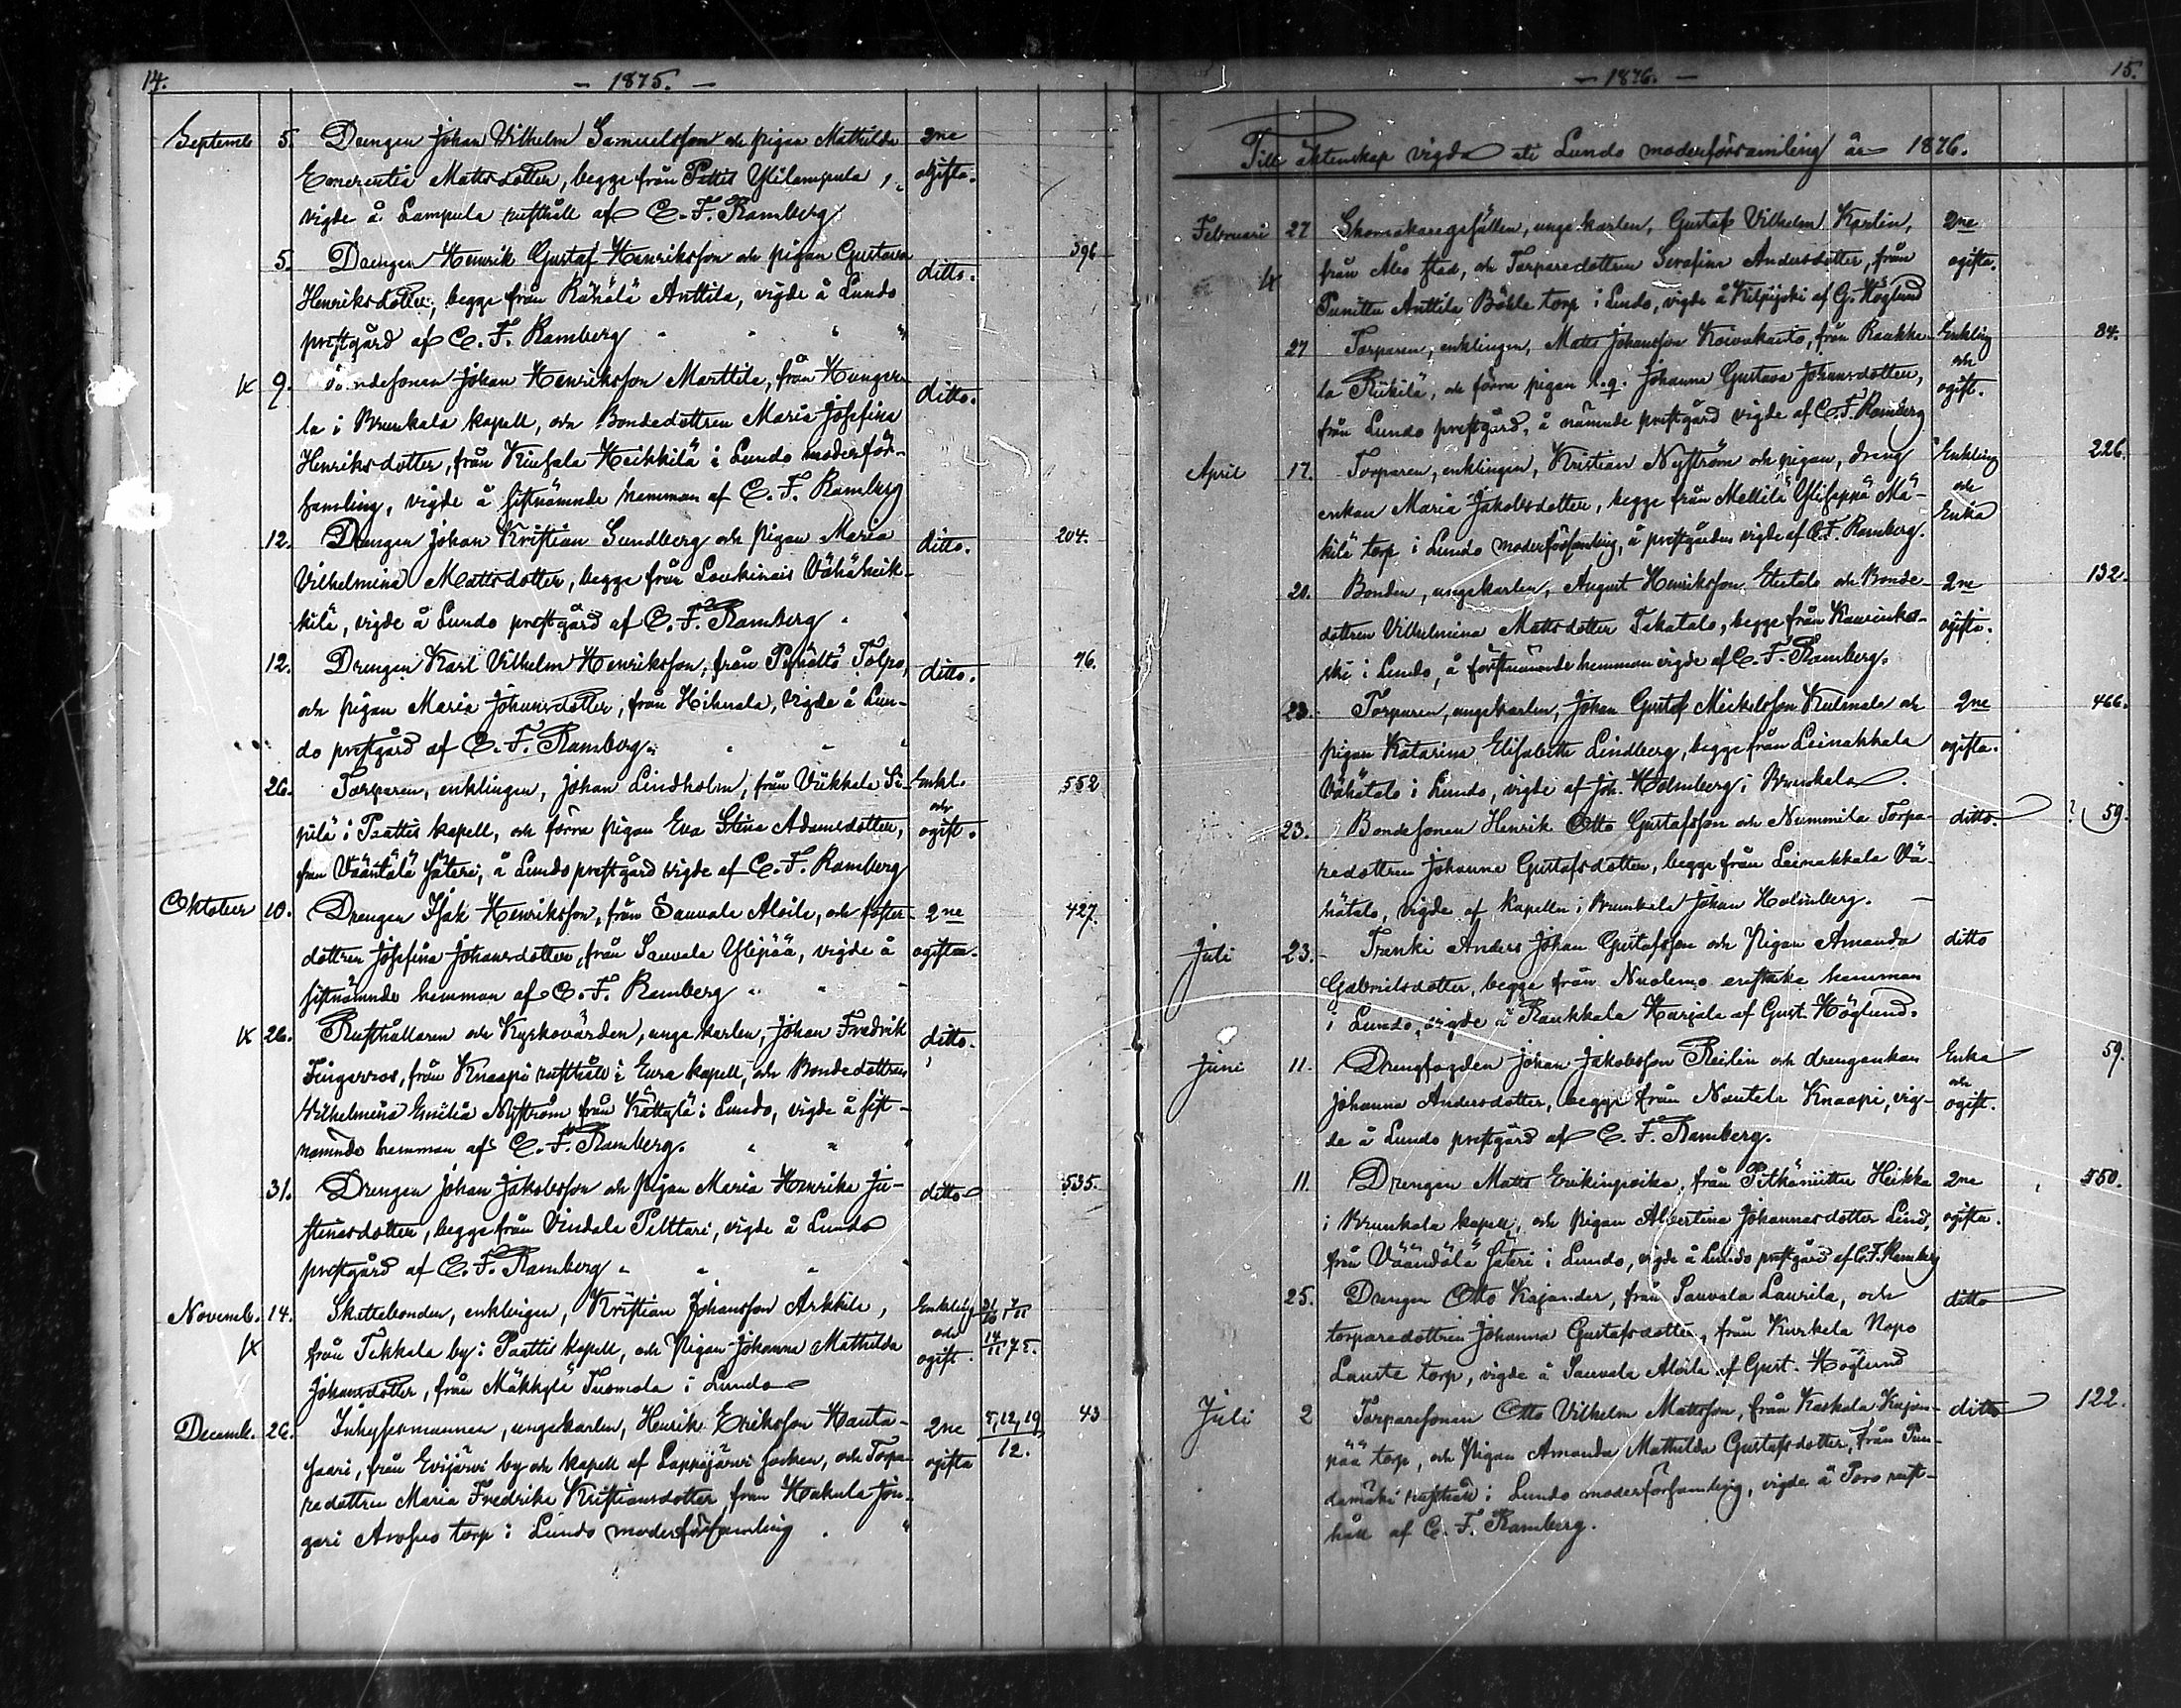 14.
- 1875. -
Septemb 5. Drengen Johan Vilhelm Samuelsson och pigan Mathilda 2ne
Emerentia Mattsdotter, begge från Pettis Ylilampula, ogifta.
vigde å Lampula rusthåll af C. F. Ramberg
5. Drengen Henrik Gustaf Henriksson och pigan Gustava ditto. 396
Henriksdotter, begge från Rähälä Anttila, vigde å Lundo
prestgård af C. F. Ramberg
9. Bondesonen Johan Henriksson Marttila, från Hunger- ditto.
la i Brunkala kapell, och Bondedottren Maria Josefina
Henriksdotter, från Heikkilä i Lundo moderför-
samling, vigde å sistnämnde hemman af C. F. Ramberg
12. Drengen Johan Kristian Sundberg och Pigan Maria ditto. 204.
Vilhelmina Mattsdotter, begge från Loukinais Vähäheik-
kilä, vigde å Lundo prestgård af C. F. Ramberg
12. Drengen Karl Vilhelm Henriksson, från Pyhältö Tolpo, ditto. 76.
och pigan Maria Johansdotter, från Hihnala, vigde å Lun-
do prestgård af C. F. Ramberg.
26. Torparen, enklingen, Johan Lindholm, från Viikkala Si- Enkl. 552
pilä i Paattis kapell, och förra pigan Eva Stina Adamsdotter, och ogift.
från Väantälä säteri, å Lundo prestgård vigde af C. F. Ramberg
Oktober 10. Drengen Isak Henriksson, från Sauvala Aloila, och foster- 2ne 427.
dottren Josefina Johansdotter, från Sauvala Ylipää, vigde å ogifta.
sistnämnde hemman af C. F. Ramberg
26. Rusthållaren och Kyrkovärden, ungkarlen, Johan Fredrik ditto.
Fingerroos, från Knaapi rusthåll i Eura kapell, och Bondedottren
Wilhelmina Emilia Nyström från Kättylä i Lundo, vigde å sist-
nämnde hemman af C. F. Ramberg.
31. Drengen Johan Jakobsson och Pigan Maria Henrika Ju- ditto 535.
stinasdotter, begge från Vindala Pelttari, vigde å Lundo
prestgård af C. F. Ramberg
Novemb. 14. Skattebonden, enklingen, Kristian Johansson Arkkila, Enkling
från Tekkala by i Paattis kapell, och Pigan Johanna Mathilda och 14/11 75.
Johansdotter, från Mäkkylä Tuomola i Lundo ogift.
Decemb. 26. Inhysesmannen, ungkarlen, Henrik Eriksson Hauta- 2ne 5, 12, 19 43
saari, från Evijärvi by och kapell af Lappajärvi socken, och Torpa- ogifta 12.
redottren Maria Fredrika Kristiansdotter från Hakula Jun-
gari torp i Lundo moderförsamling
- 1876. -
15.
Till äktenskap vigda uti Lundo moderförsamling år 1876.
Februari 27 Skomakaregesällen, unge karlen, Gustaf Vilhelm Karlin, 2ne
från Åbo stad, och Torparedottren Serafina Andersdotter, från ogifta.
Punittu Anttila Böhle torp i Lundo, vigde å Kilpijoki af G. Höglund
27 Torparen, enklingen, Matts Johansson Koivukanto, från Raukka- Enkling 84.
la Riikilä, och förra pigan Johanna Gustava Johansdotter, och ogift.
från Lundo prestgård, å nämnde prestgård vigde af C. F. Ramberg
April 17. Torparen, enklingen, Kristian Nyström och pigan, dreng Enkling 226.
enkan Maria Jakobsdotter, begge från Mellilä Ylisippa Mä- och
kilä torp i Lundo moderförsamling, å prestgården vigde af C. F. Ramberg. Enka
20. Bonden, ungkarlen, August Henriksson Etutalo och Bonde- 2ne 132.
dottren Vilhelmina Mattsdotter Takatalo, begge från Kaurinko- ogifta.
ski i Lundo, å förstnämnde hemman vigde af C. F. Ramberg.
23. Torparen, ungkarlen, Johan Gustaf Mickelsson Kulmala och 2ne 466.
pigan Katarina Elisabeth Lindberg, begge från Leinakkala ogifta.
Vähätalo i Lundo, vigde af Joh. Holmberg i Brunkala.
23. Bondesonen Henrik Otto Gustafsson och Nummila Torpa- ditto. ? 59.
redottren Johanna Gustafsdotter, begge från Leinakkala Vä-
hätalo, vigde af kapelln i Brunkala Johan Holmberg.
Juli 23. Trenki Anders Johan Gustafsson och Pigan Amanda ditto
Gabrielsdotter, begge från Nuolemo hemman
i Lundo, vigde å Raukkala Harjala af Gust. Höglund.
Juni 11. Drengfogden Johan Jakobsson Reilin och drengenkan Enka 59.
Johanna Andersdotter, begge från Nautela Knaapi, vig- och ogift.
de å Lundo prestgård af C. F. Ramberg.
11. Drengen Matts Erikinpoika, från Pitkäniittu Heikka 2ne 550.
i Brunkala kapell, och Pigan Albertina Johannasdotter Lind, ogifta.
från Väändälä Säteri i Lundo, vigde å Lundo prestgård af C. F. Ramberg
25. Drengen Otto Kajander, från Sauvala Laurila, och ditto
torparedottren Johanna Gustafsdotter, från Kurkela Napo
Lauste torp, vigde å Sauvala Aloila af Gust. Höglund
Juli 2 Torparesonen Otto Vilhelm Mattsson, från Kaskala Kujan- ditto 122.
pää torp, och Pigan Amanda Mathilda Gustafsdotter, från Pun-
damäki rusthåll i Lundo moderförsamling, vigde å Poro rust-
håll af C. F. Ramberg.